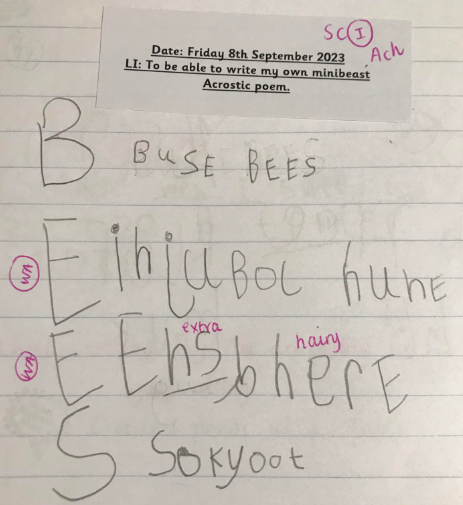 SC I
Ach
Date: Friday 8th September 2023
LI: To be able to write my own minibeast
Acrostic poem.
B BUSE BEES
E ihjuBOL huhE
extra hairy
E EhSbherE
S SoKyoot